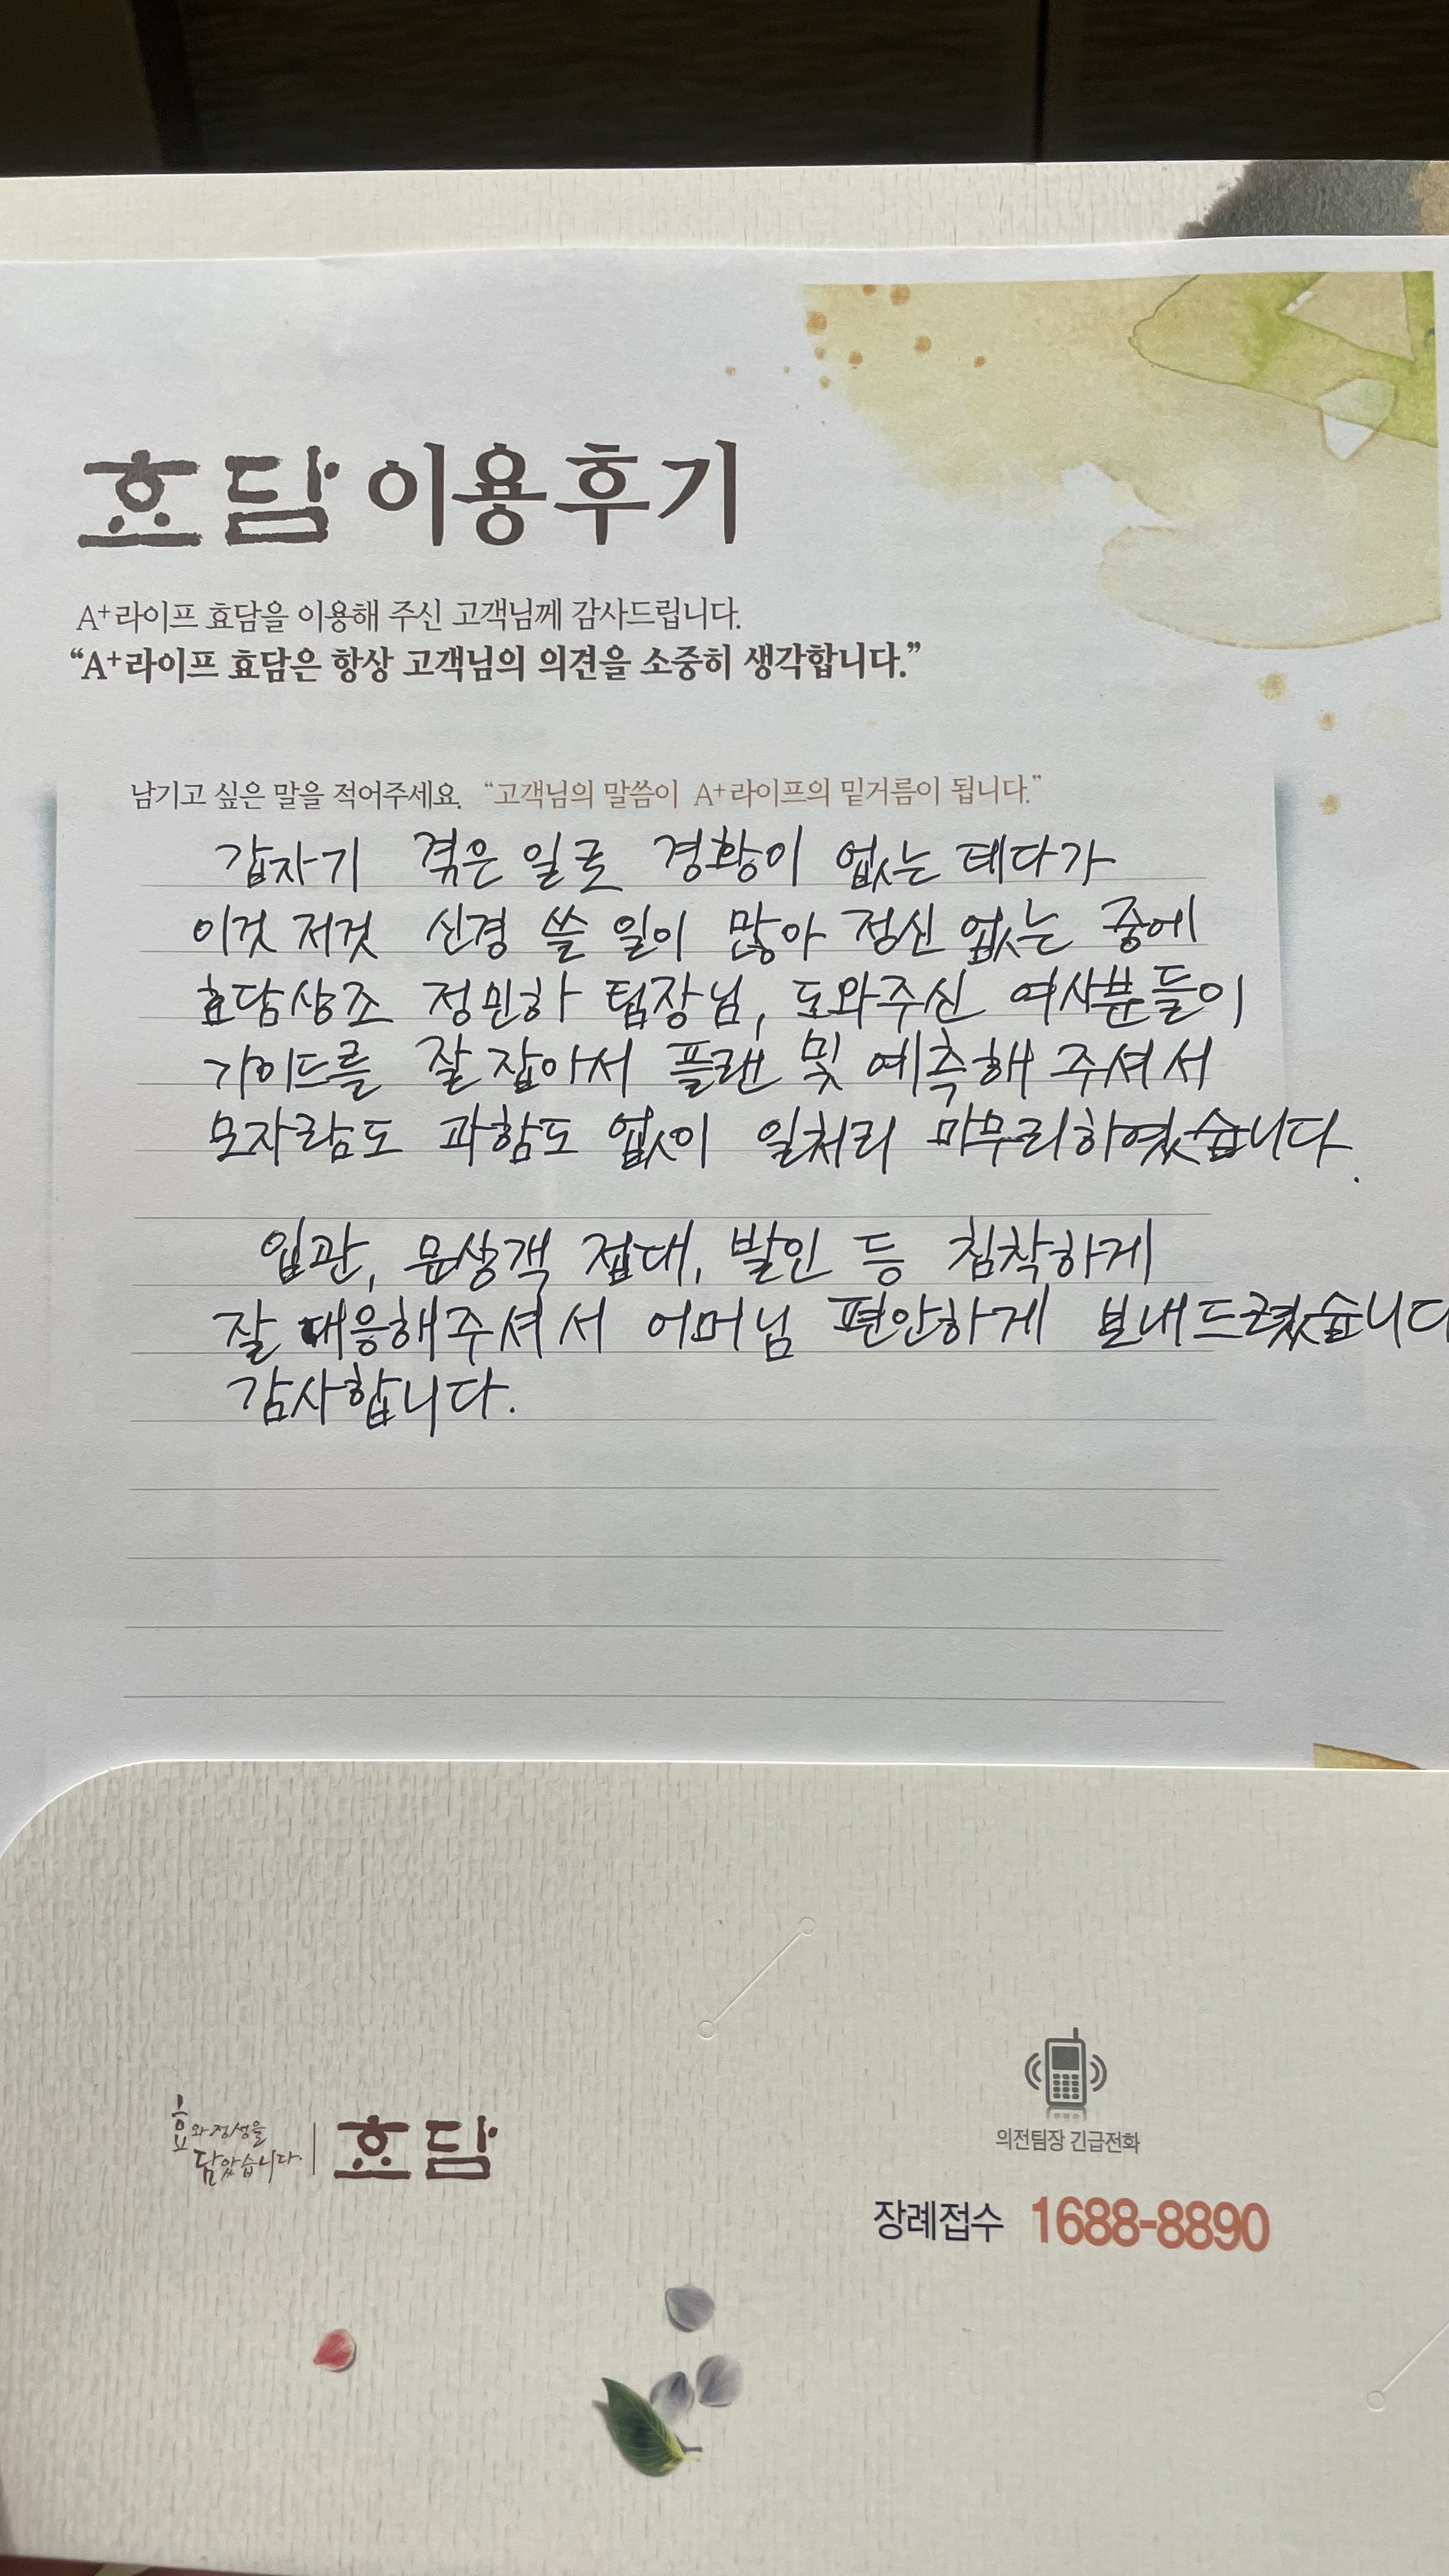 효담 이용후기
A+라이프 효담을 이용해 주신 고객님께 감사드립니다.
“A+라이프 효담은 항상 고객님의 의견을 소중히 생각합니다.”
남기고 싶은 말을 적어주세요. “고객님의 말씀이 A+라이프의 밑거름이 됩니다.”
갑자기 겪은 일로 경황이 없는 데다가
이것 저것 신경 쓸 일이 많아 정신 없는 중에
효담상조 정민하 팀장님, 도와주신 여사분들이
가이드를 잘 잡아서 플랜 및 예측해 주셔서
모자람도 과함도 없이 일처리 마무리하였습니다.
입관, 문상객 접대, 발인 등 침착하게
잘 대응해주셔서 어머님 편안하게 보내드렸습니다
감사합니다.
효와 정성을
담았습니다. 효담
의전팀장 긴급전화
장례접수 1688-8890